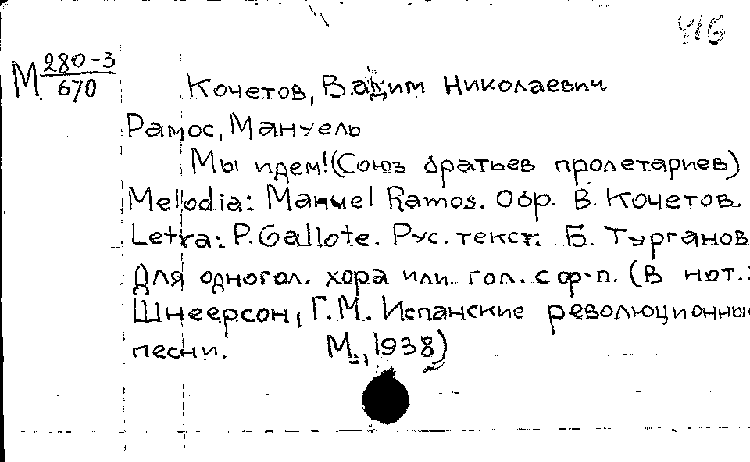 416
М 280-3
670
Кочетов, Вадим Николаевич
Рамос, Мануель
Мы идем! (Союз братьев пролетариев)
Mellodia: Manuel Ramos. Обр. В. Кочетов.
Letra: P. Gallote. Рус. текст. Б. Турганов
Для одногол. хора или гол. с ф-п. (В нот.:
Шнеерсон, Г.М. Испанские революционные
песни. М., 1938)